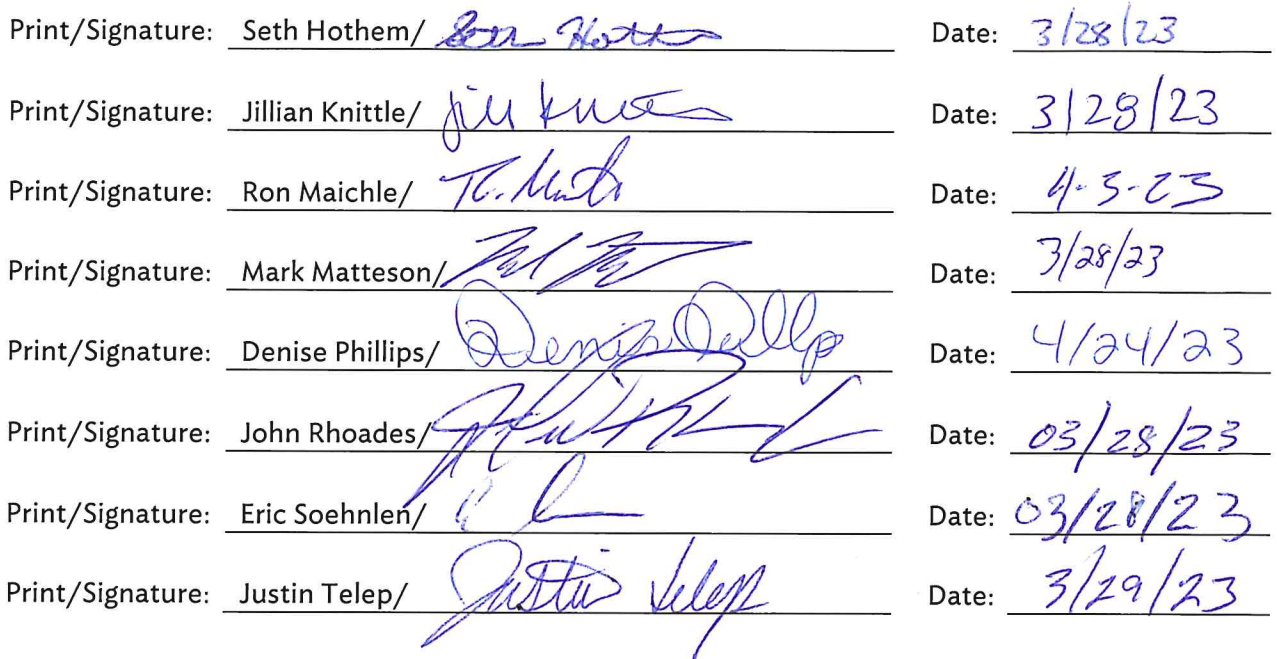 Print/Signature: Seth Hothem/ Seth Hothem Date: 3/28/23
Print/Signature: Jillian Knittle/ Jill Date: 3/28/23
Print/Signature: Ron Maichle/ Date: 4-3-23
Print/Signature: Mark Matteson/ Date: 3/28/23
Print/Signature: Denise Phillips/ Denise Phillips Date: 4/24/23
Print/Signature: John Rhoades/ Date: 03/28/23
Print/Signature: Eric Soehnlen/ Date: 03/28/23
Print/Signature: Justin Telep/ Justin Telep Date: 3/29/23